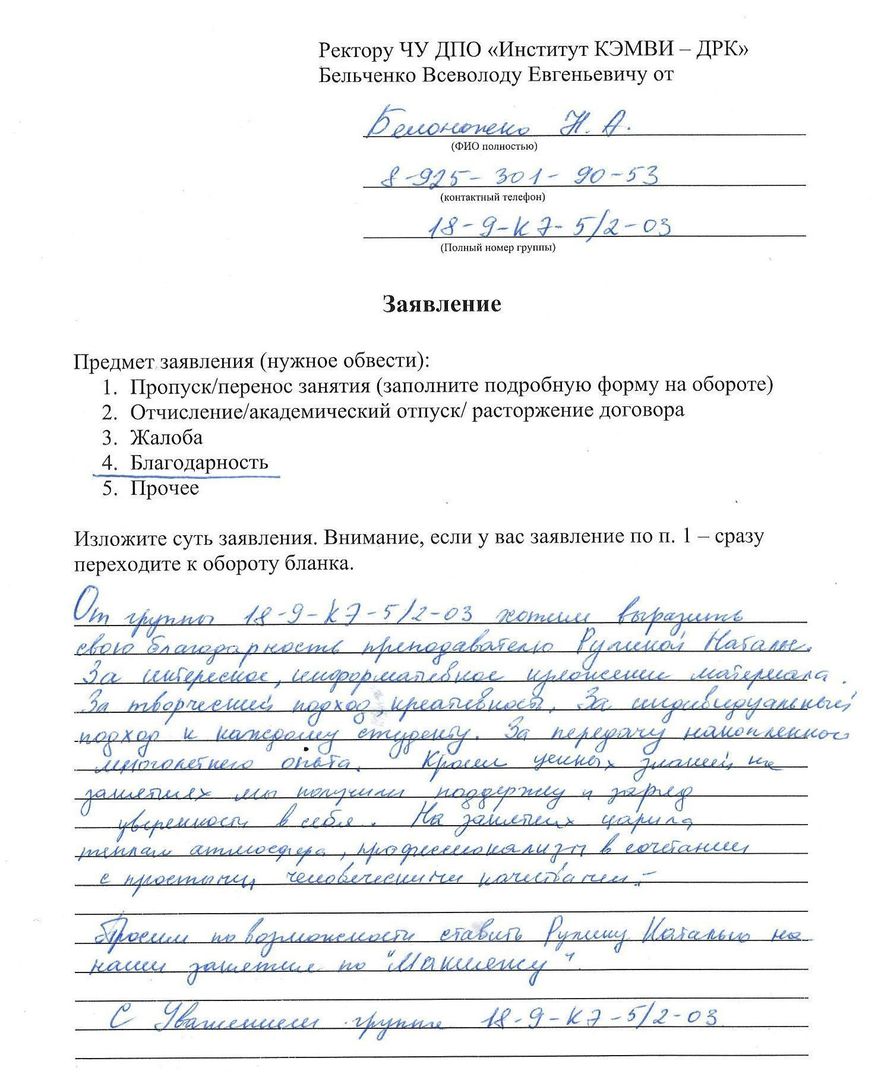 Ректору ЧУ ДПО «Институт КЭМВИ – ДРК»
Бельченко Всеволоду Евгеньевичу от
Белоножко Н. А.
(ФИО полностью)
8-925-301-90-53
(контактный телефон)
18-9-КЭ-5/2-03
(Полный номер группы)
Заявление
Предмет заявления (нужное обвести):
1. Пропуск/перенос занятия (заполните подробную форму на обороте)
2. Отчисление/академический отпуск/ расторжение договора
3. Жалоба
4. Благодарность
5. Прочее
Изложите суть заявления. Внимание, если у вас заявление по п. 1 – сразу
переходите к обороту бланка.
От группы 18-9-КЭ-5/2-03 хотим выразить
свою благодарность преподавателю Наталье.
За интересное, информативное изложение материала.
За творческий подход, креативность, За индивидуальный
подход к каждому студенту. За передачу накопленного
многолетнего опыта. Кроме ценных знаний, на
занятиях мы получили поддержку и заряд
уверенности в себе. На занятиях царила
теплая атмосфера, профессионализм в сочетании
с простыми, человеческими качествами.
Просим по возможности ставить Наталью на
наши занятия по "Макияжу".
С Уважением группа 18-9-КЭ-5/2-03